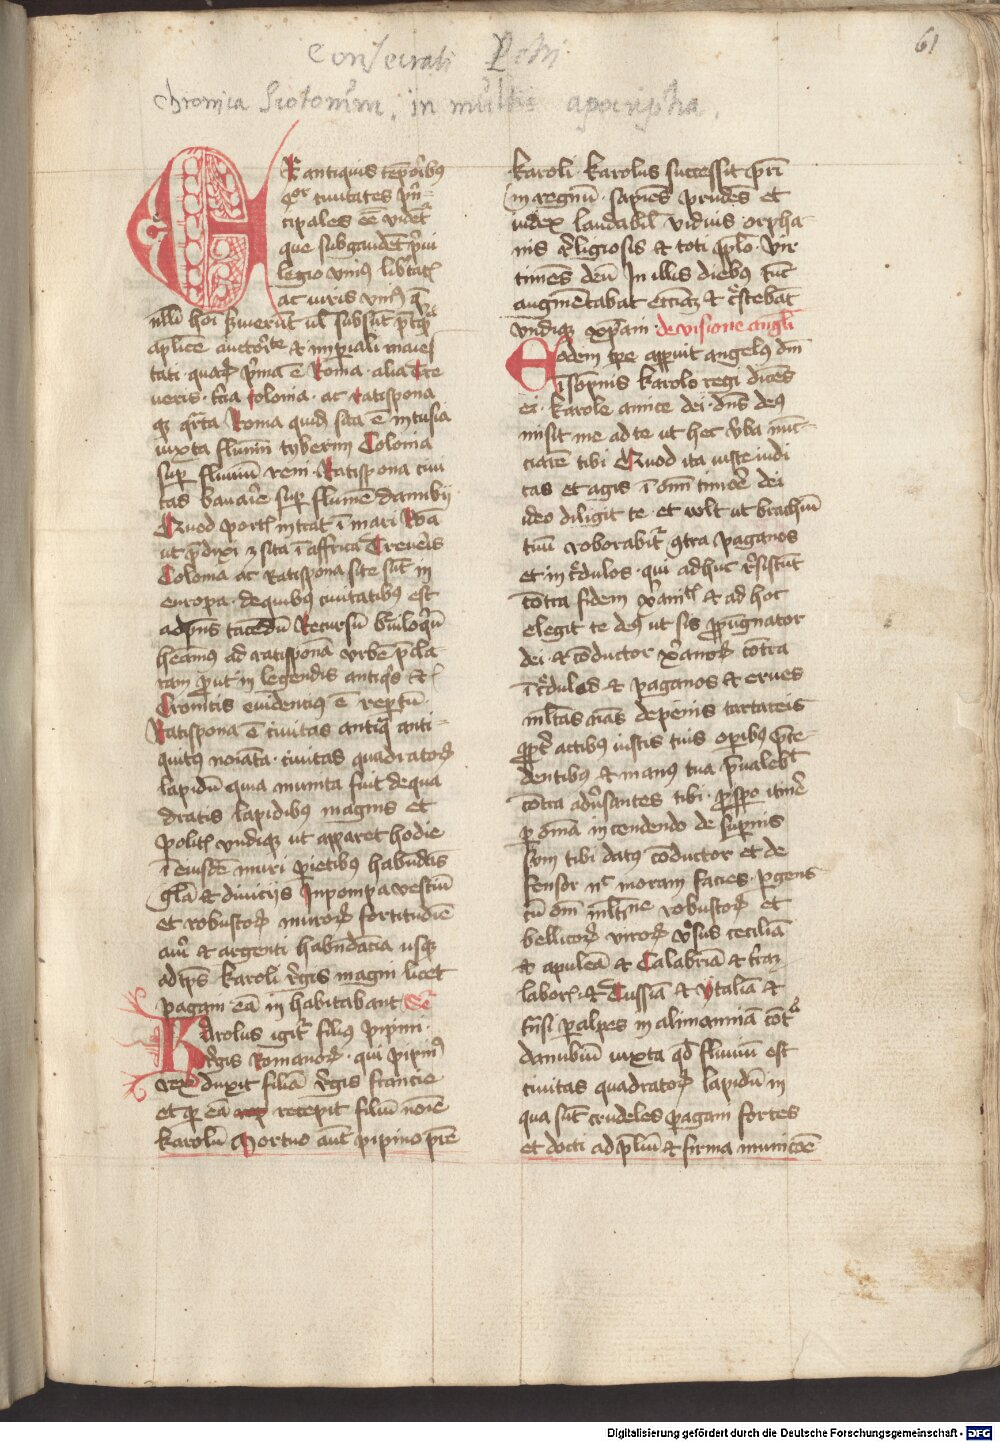 61
Consecrati Petri
chronica Scotorum. in multis apocripha.
EX antiquis temporibus
quatuor ciuitates prin-
cipales esse videntur
que subgaudent priui
legio vnius libertatis
ac iuris vnius que
nulli homini seruierunt vel subsunt preterquam
aplice auctorite et imperiali maies
tati quarum prima e Roma. alia Tre
ueris. tercia Colonia. ac Ratispona
quarta Roma quidem sita e in tusia
iuxta flumen tyberim Colonia
super fluuium reni. Ratispona ciui
tas bauarie super flumen danubij
Quod portus intrat i mari Roma
ut predixi sita i affrica Treueris
Colonia ac Ratispona site sunt in
europa. de quibus ciuitatibus est
ad presens tacendum Recursum breuiloquum
habeamus ad ratisponam vrbem precla
ram prout in legendis antiquis et
Cronicis euidencius e repertum
Ratispona e ciuitas antiqua anti-
quitus noiata. ciuitas quadratorum
lapidum quia munita fuit de qua
dratis lapidibus magnis et
politis vndique ut apparet hodie
i eiusdem muri parietibus habundans
gloria et diuicijs In pompa vestium
et robustorum murorum fortitudine
auri et argenti habundancia usque
ad tempus karoli regis magni licet
pagani eam inhabitabant De
Karolus igitur filius pipini.
regis Romanorum. qui pipinus
rex duxit filiam regis francie
et per eam recepit filium nomine
karolum Mortuo autem pipino patre
karoli karolus successit patri
in regnum. sapiens prudens et
iudex laudabilis viduis orpha-
nis religiosis et toti populo. vir
timens deum In illis diebus tunc
augmentabat ecclesiam et crescebat
vndique xpiam. de visione angeli
Eodem tempore apparuit angelus domini
in sompnis karolo regi dicens
ei. karole amice dei. dominus deus
misit me ad te ut hec verba nun-
ciarem tibi Quod ita iuste iudi
cas et agis i omni timore dei
ideo diligit te. et vult ut brachium
tuum roborabitur contra paganos
et incredulos. qui adhuc resistunt
contra fidem xpianitatis et ad hoc
elegit te deus ut sis propugnator
dei. et conductor xpianorum contra
incredulos et paganos et erues
multas animas de penis tartareis
propter actibus iustis tuis operibus prece-
dentibus et manus tua preualebit
contra aduersantes tibi. prospero itinere
per omnia incendendo de supernis
sum tibi datus conductor et de
fensor nec moram facies. pergens
cum omni multitudine robustorum et
bellicorum virorum versus ceciliam
et apuleam et Calabriam et terram
laboris. et Tussiam et ytaliam et
transi per alpes in alimanniam contra
danubium iuxta quod fluuium est
ciuitas quadratorum lapidum in
qua sunt crudeles pagani fortes
et docti ad prelium et firma municione
Digitalisierung gefördert durch die Deutsche Forschungsgemeinschaft - DFG